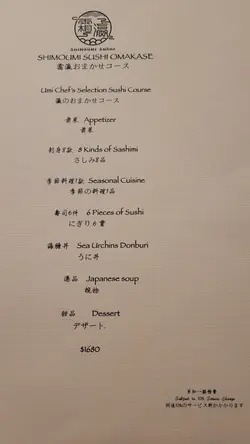 SHIMOUMI SUSHI OMAKASE
おまかせコース
Umi Chef's Selection Sushi Course
瀛のおまかせコース
前菜 Appetizer
前菜
刺身8款 8 Kinds of Sashimi
さしみ8品
季節料理1款 Seasonal Cuisine
季節の料理1品
壽司6件 6 Pieces of Sushi
にぎり6貫
海膽丼 Sea Urchins Donburi
うに丼
湯品 Japanese soup
椀物
甜品 Dessert
デザート
$1680
另加一服務費
Subject to 10% Service Charge
別途10%のサービス料かかります